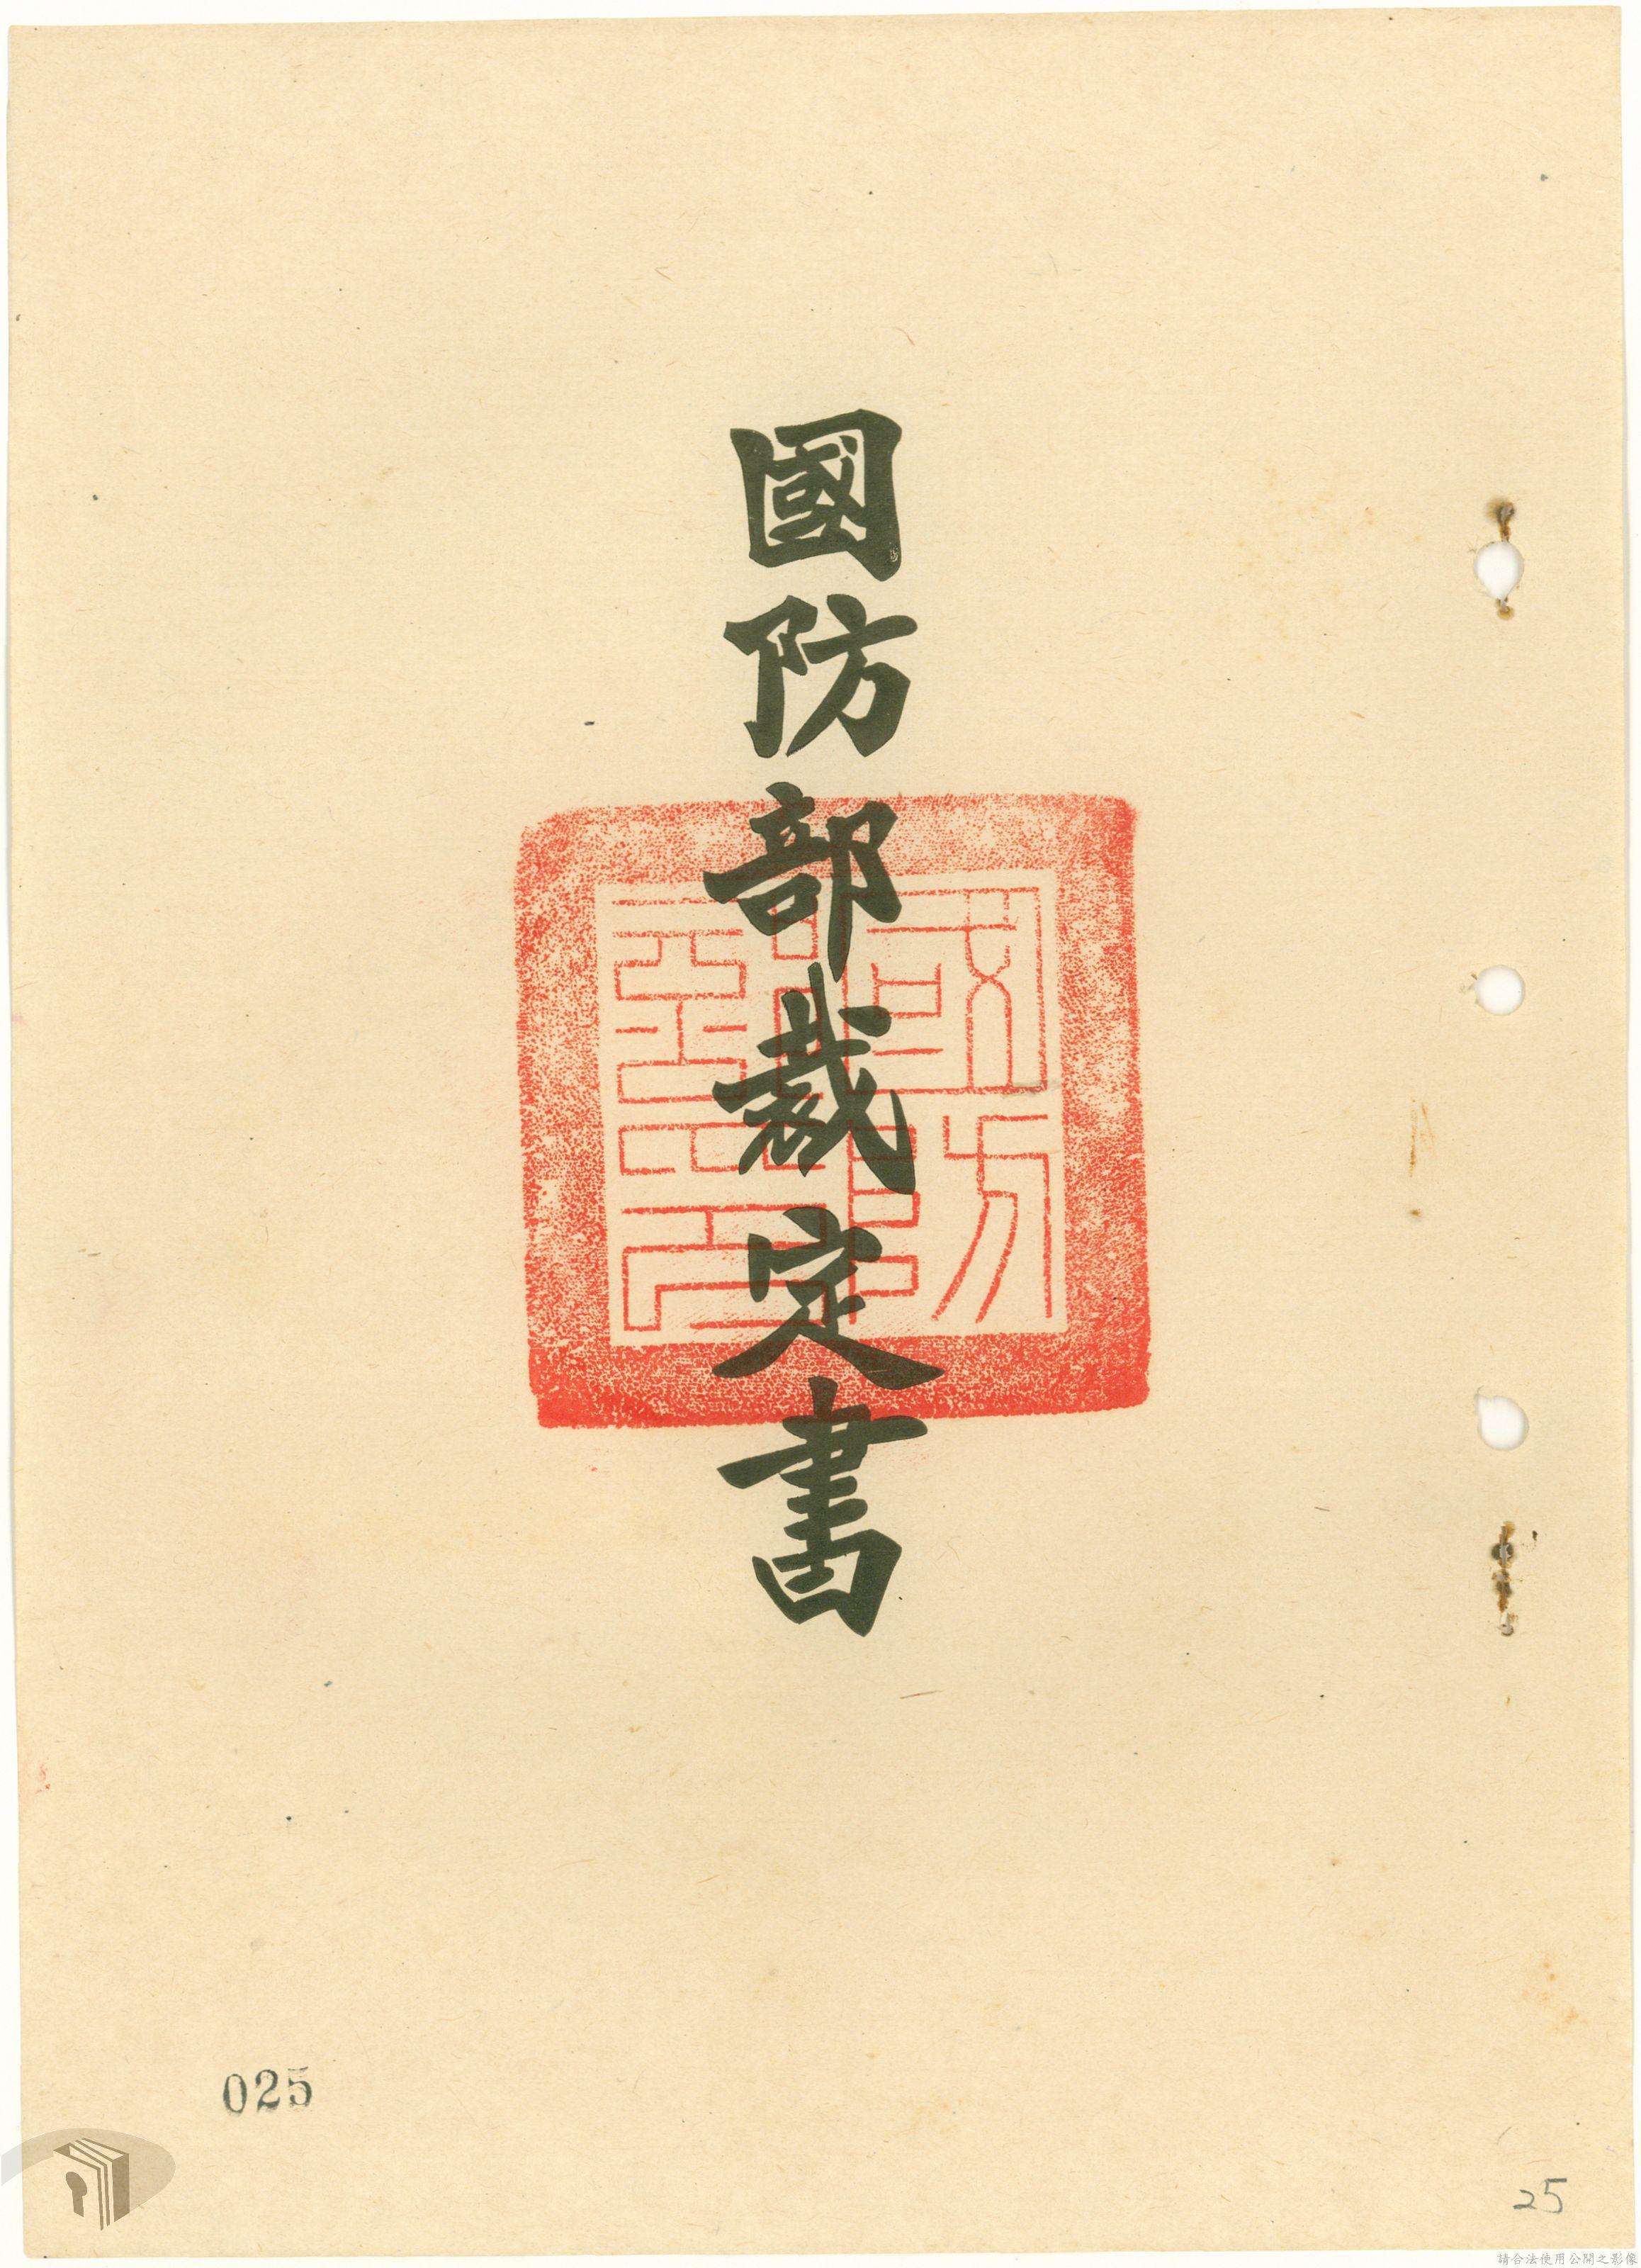 國防部裁定書
國防部印
025
25
請合法使用公開之影像